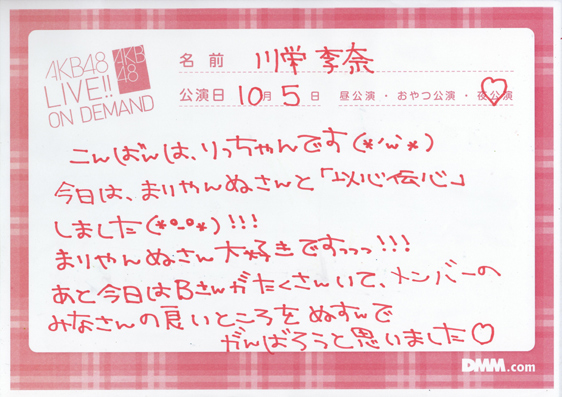 AKB48
LIVE!!
ON DEMAND
AKB
48
名前 川栄 李奈
公演日 10月 5日 昼公演・おやつ公演・夜公演
こんばんは、りっちゃんです(*'ω'*)
今日は、まりやんぬさんと「以心伝心」
しました(*°_°*)!!!
まりやんぬさん大好きですっっっ!!!
あと今日はBさんがたくさんいて、メンバーの
みなさんの良いところをぬすんで
がんばろうと思いました♡
DMM.com